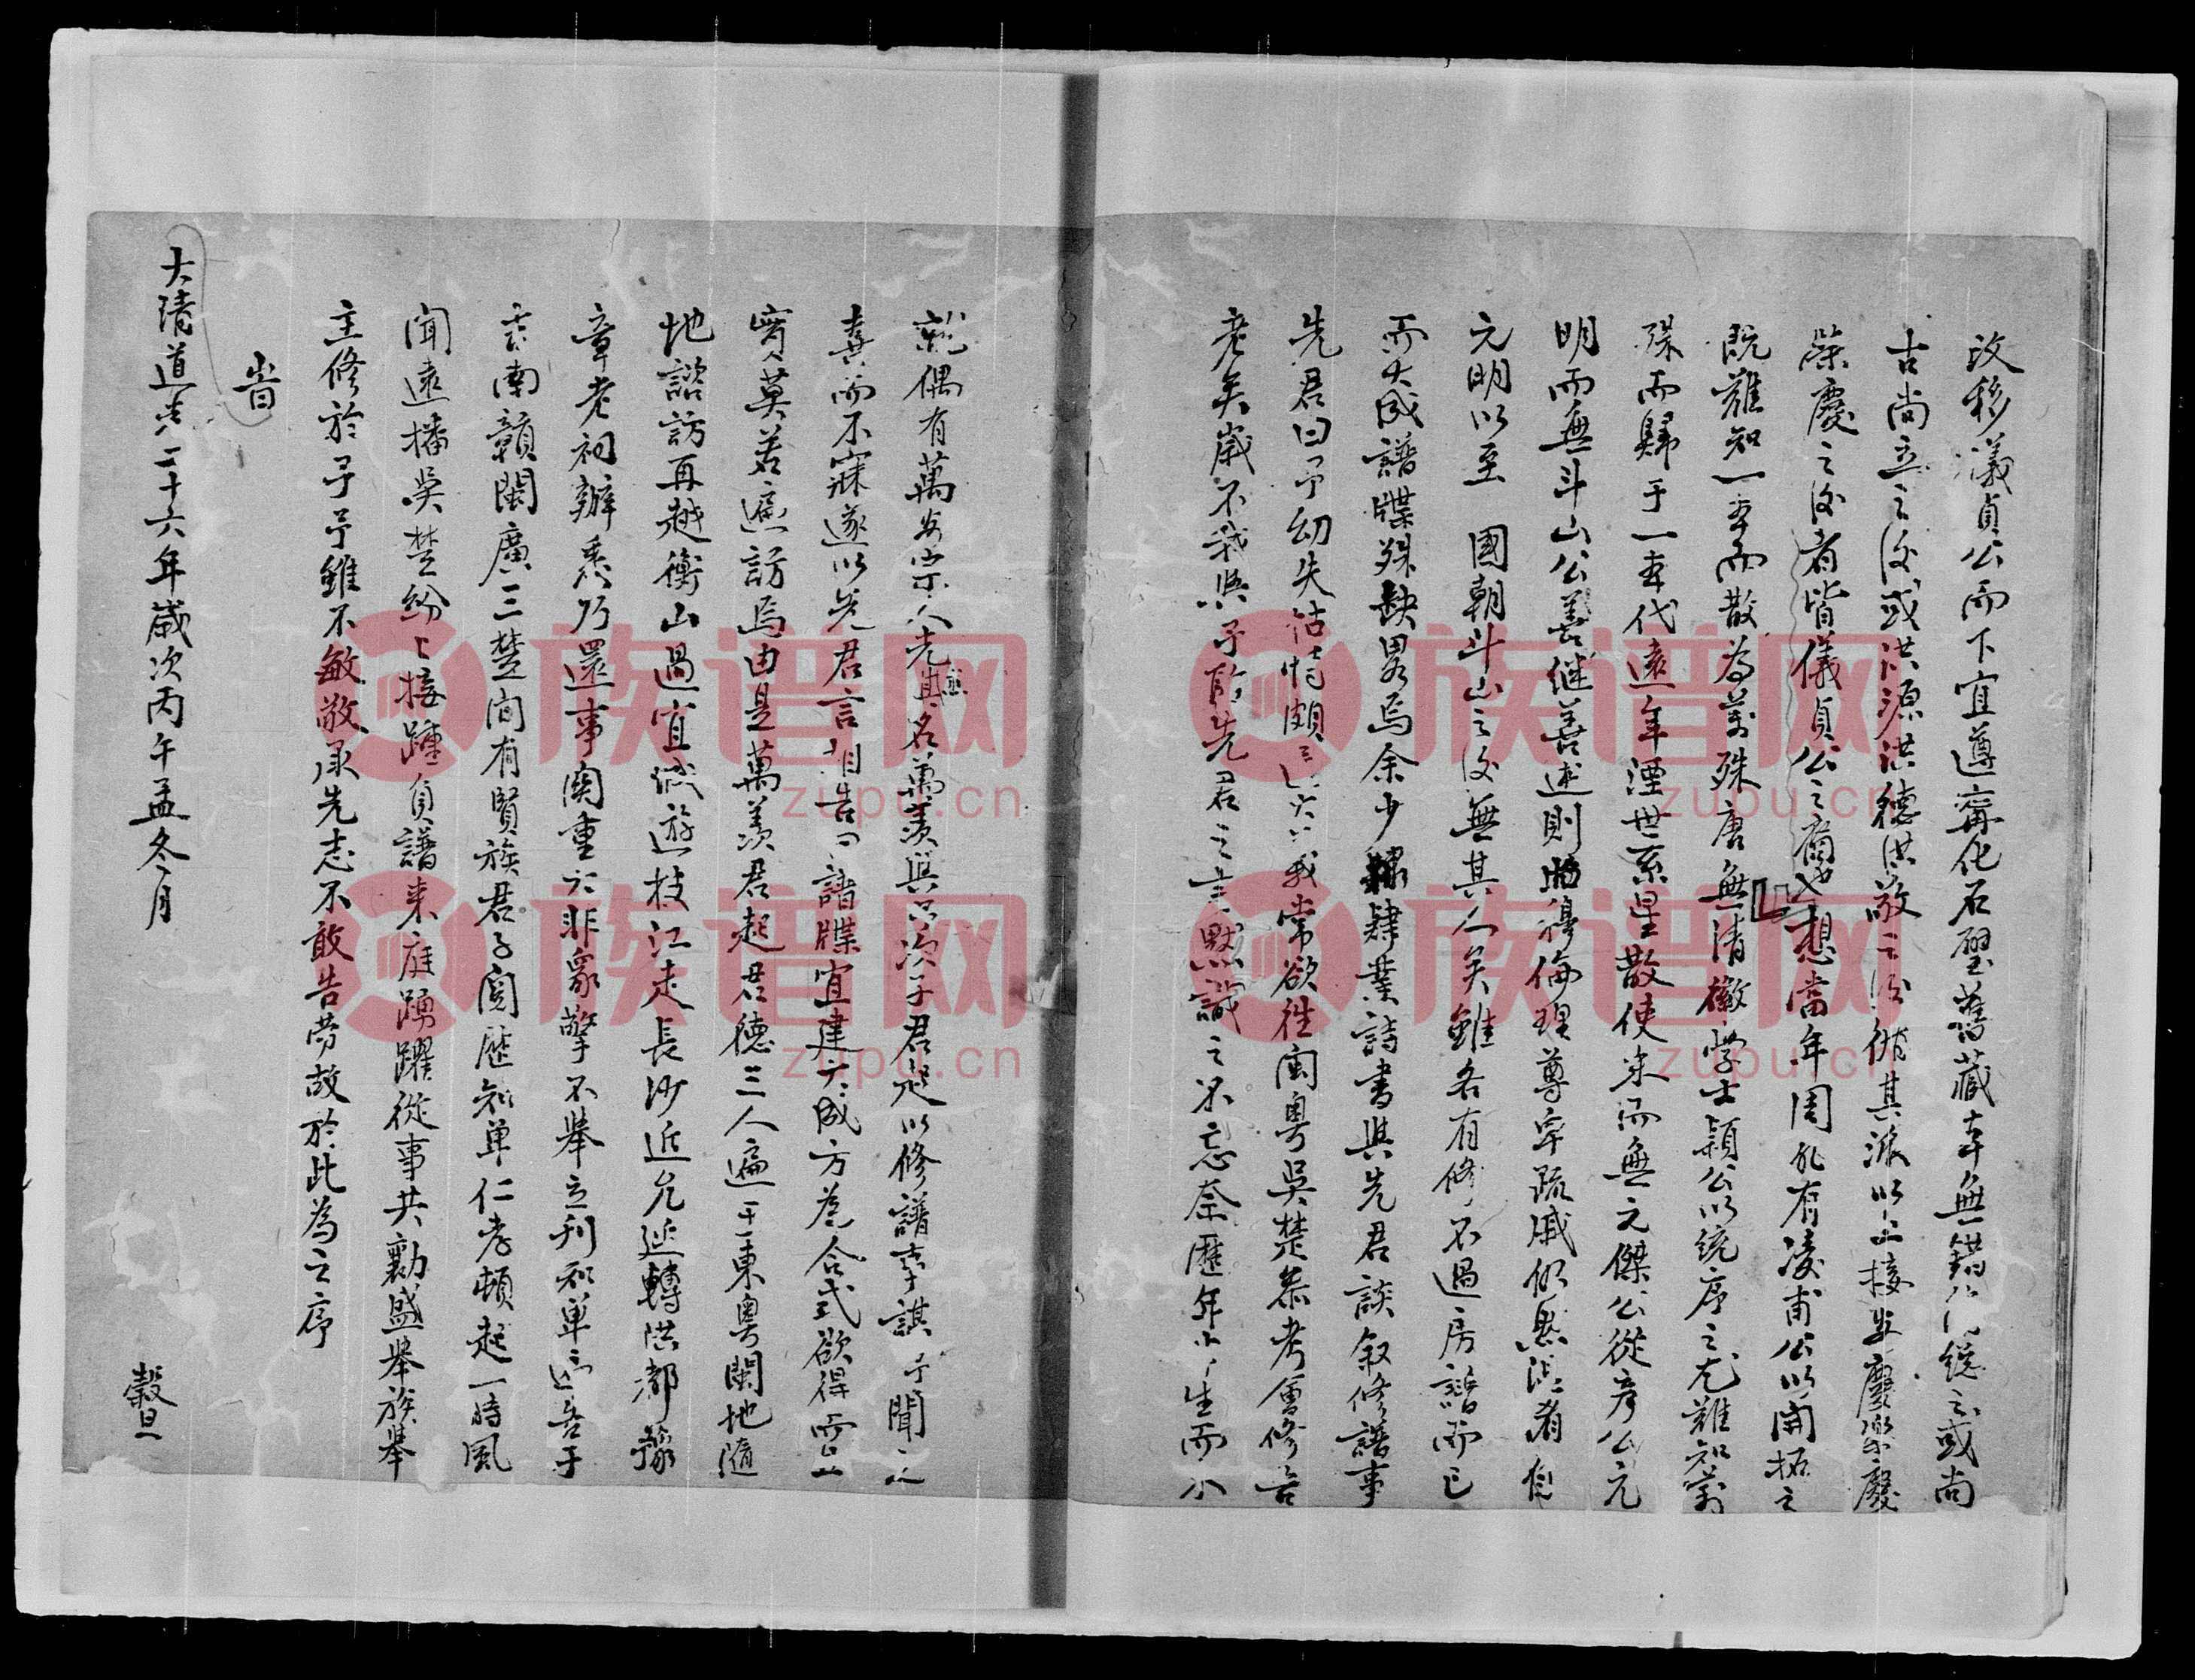 汶移儀貞公而下宜遵甯化石壁舊藏幸無錯從之或尚
古尚立之後或洪源洪德洪敬之後俻其派以上接虫慶樂慶
榮慶之後者皆儀貞公之裔也想當年周孔有凌甫公以開拓之
既難知一本而散為萬殊唐無清徽学士穎公以統序之尤難知萬
殊而歸于一本代遠年湮世系星散使宋而無元傑公從彥公元
明而無斗山公善继善述則昭穆倫理尊卑疏戚俱熟能者自
元明以至 國朝斗山之後無其人矣雖各有修不過房譜而已
而大成譜牒殊缺畧焉余少肄業詩書與先君談叙修譜事
先君曰予幼失怙恃我常欲徃闽粵吳楚恭考會修吾
老矣歲不我與予聆先君之言默識之不忘奈歷年生而不
就偶有萬安宗人名萬羨與次子君起以修譜来謀予聞之
喜而不寐遂以先君言相告曰譜牒宜建大成方為合式欲得
實莫若遍訪焉由是萬羨君起君德三人遍于東粤閩地隨
地諮訪再越衡山過宜城遊枝江走長沙近允延轉洪都豫
章老祠辦悉乃還事関重大非眾擎不舉立刊知单告于
雲南贛閩廣三楚間有賢族君子閱歷知单仁孝頓起一時風
聞遠播吳楚紛〻接踵負譜来庭踴躍從事共勷盛舉族舉
主修於予予雖不敏敬承先志不敢告勞故於此為之序
峕
大清道光二十六年歲次丙午孟冬月 穀旦
族谱网
zupu.cn
族谱网
zupu.cn
族谱网
zupu.cn
族谱网
zupu.cn